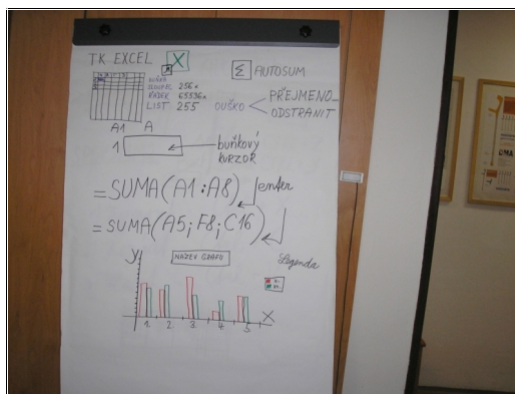 TK EXCEL X
Σ AUTOSUM
SLOUPEC 256x
ŘÁDEK 65536x
LIST 255
OUŠKO
PŘEJMENO_
ODSTRANIT
A1 A
1
buňkový
kurzor
=SUMA(A1:A8) enter
=SUMA(A5;F8;C16)
Y
NÁZEV GRAFU
Legenda
1. 2 3 4 5 X